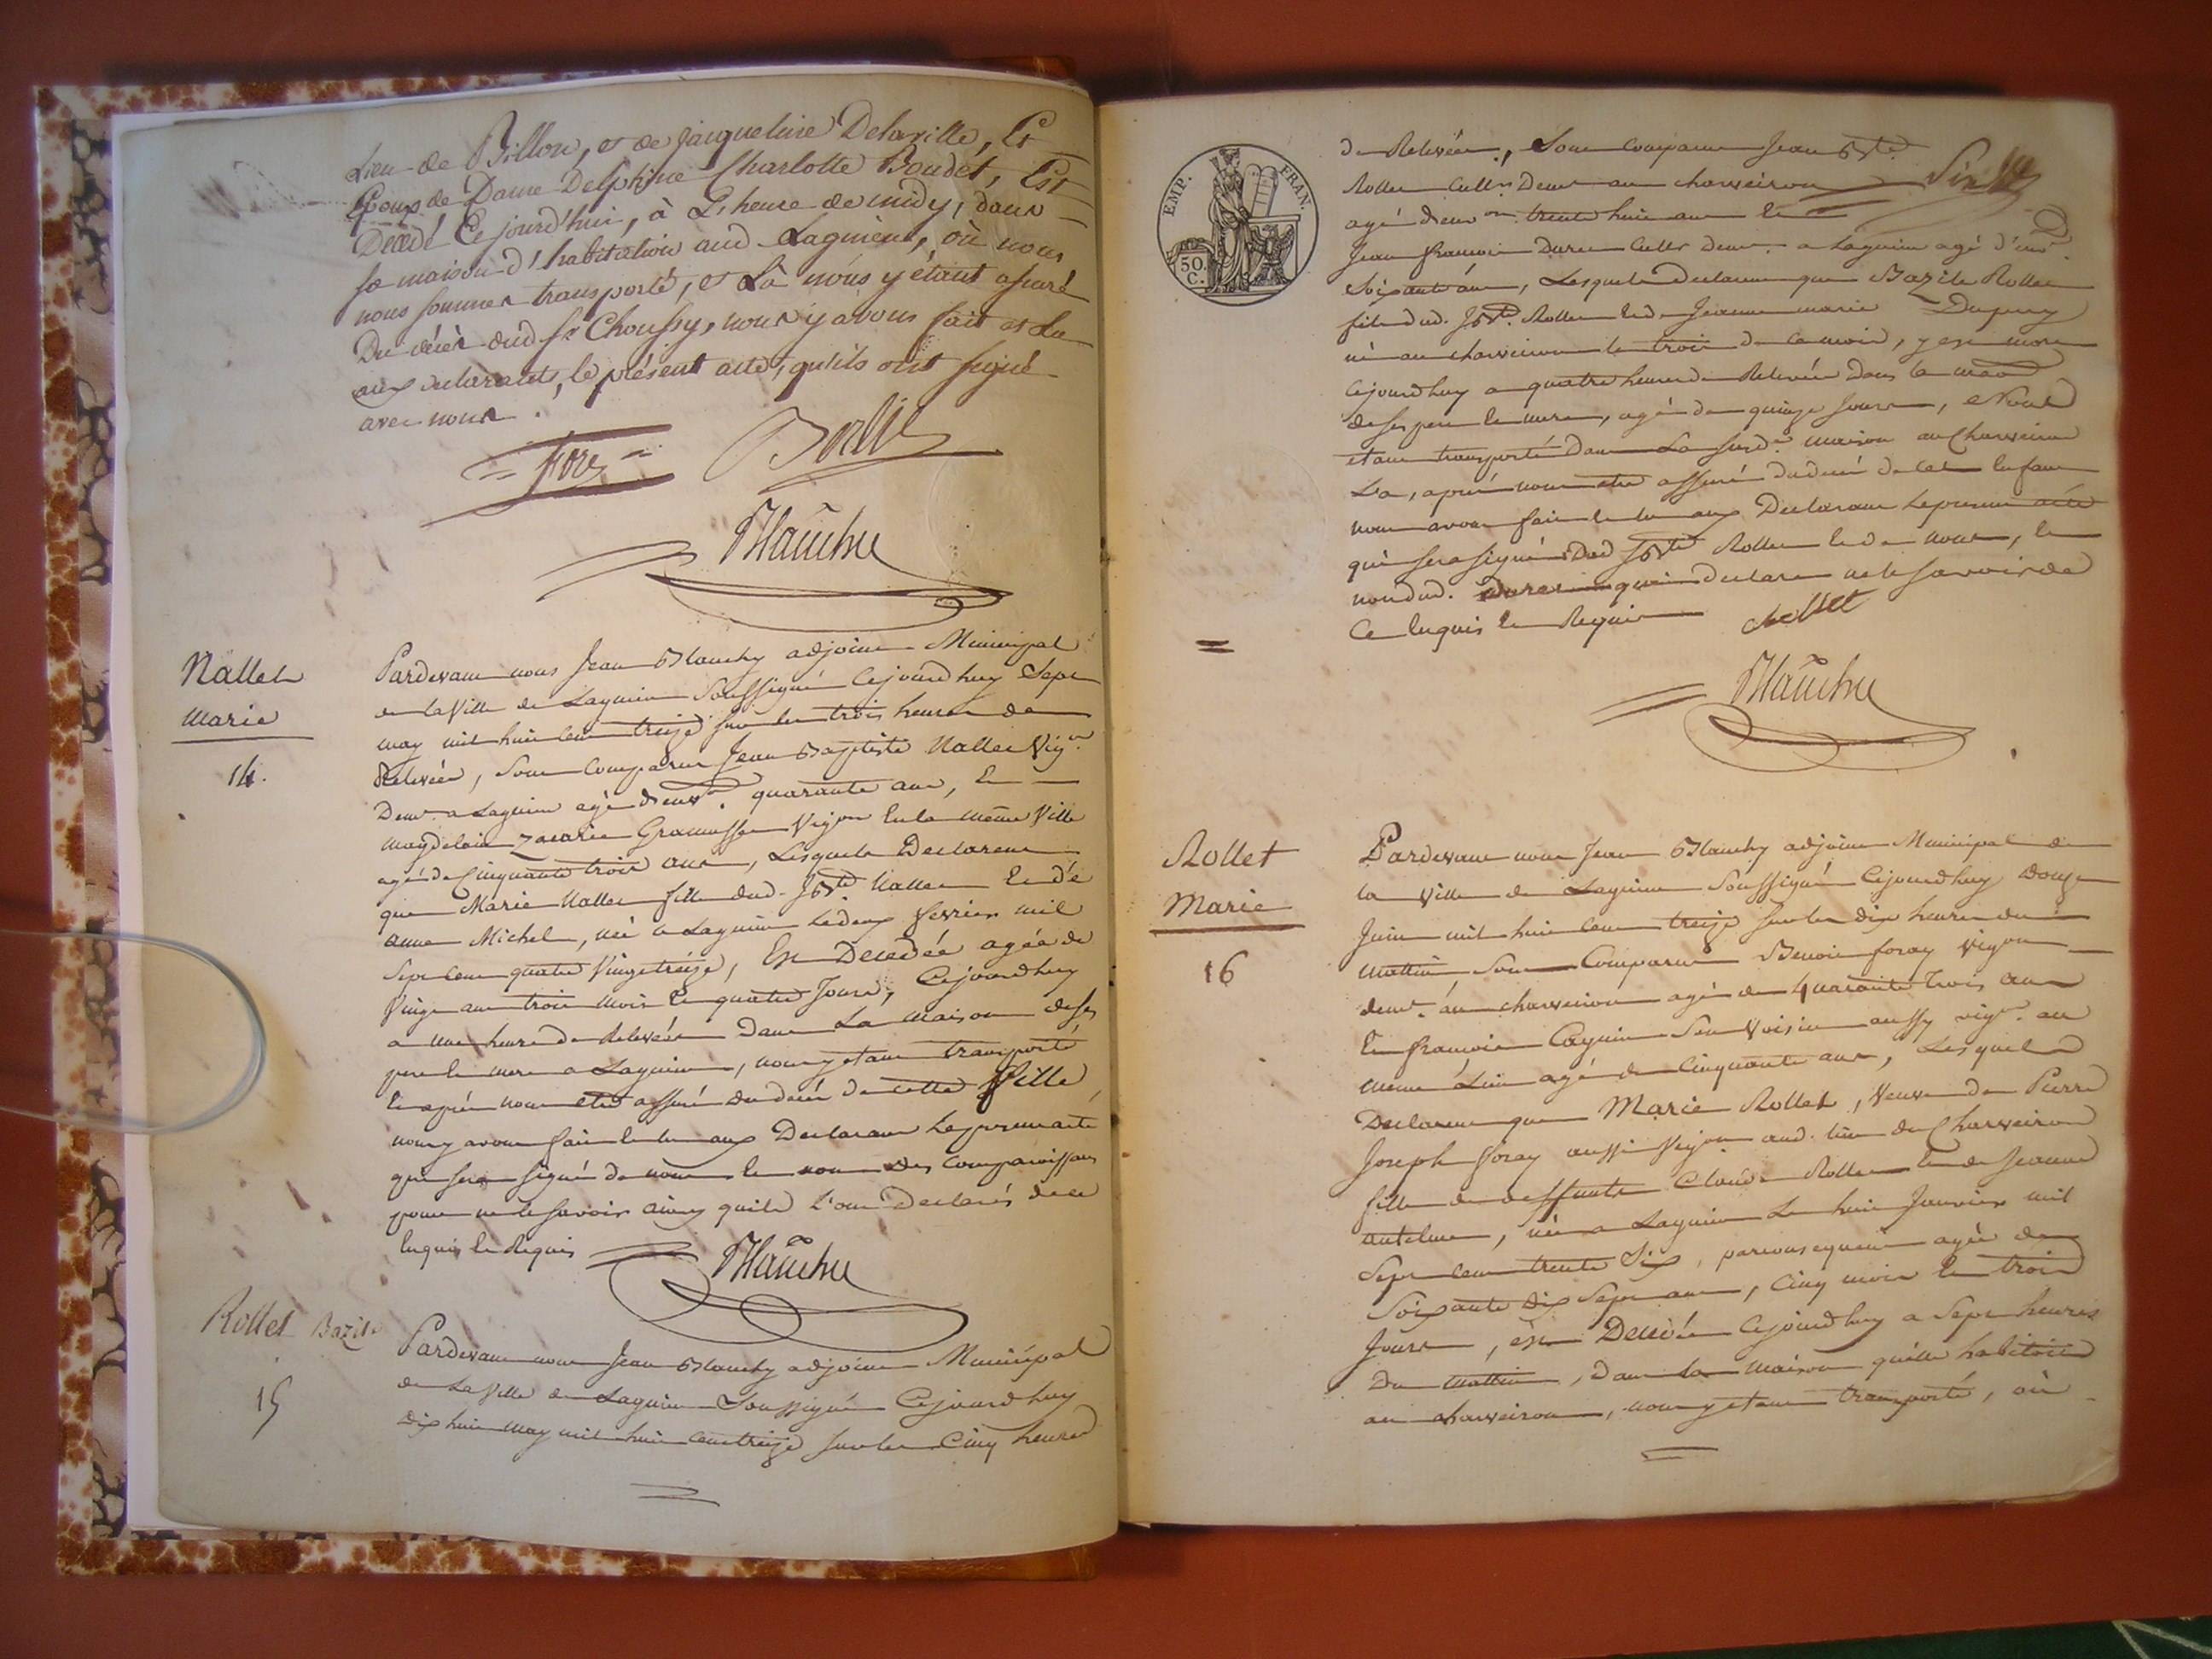 Lieu de Billon, et de jacqueline Delaville, Et
Epoux de Dame Delphine Charlotte Boudet, Est
Décédé Ce jourd'hui, à L'heure de midy, dans
sa maison d'habitation aud Lagnieu, où nous
nous sommes transporté, et Là nous y étant assuré
Du décès dud Sr Choussy, nous y avons fait et Lu
aux declarants, le présent acte, qu'ils ont signé
avec nous.
Blanchy
Nallet
Marie
14.
Pardevant nous Jean Blanchy adjoint Municipal
de la Ville de Lagnieu Soussigné Cejourdhuy Sept
may mil huit cent treize sur les trois heures de
Relevée, sont comparus Jean Baptiste Nallet Vign
Demt a Lagnieu agé d'envn. quarante ans, Et
magdelain zacarie Vigon En la même Ville
agé de Cinquante trois ans, Lesquels Declarent
que Marie Nallet fille dud. J Bte Nallet Et d'é
anne Michel, née a Lagnieu Le deux fevrier mil
Sept cent quatre Vingt treize, Est Decedée agée de
Vingt ans trois mois Et quatre Jours, Cejourdhuy
a une heure de Relevée Dans La Maison de ses
pere Et mere a Lagnieu, nous y etant transporté
Et aprés nous etre assuré du decés de cette fille
nous y avons fait Et lu aux Declarants Le present acte
qui sera signé de nous Et non des Comparoissans
pour ne le savoir ainsy quils l'ont Declarés de ce
Enquis Et Requis
Blanchy
Rollet Bazile
15
Pardevant nous Jean Blanchy adjoint Municipal
de La Ville de Lagnieu Soussigné Cejourdhuy
dix huit may mil huit cent treize sur les Cinq heures
EMP. FRAN.
50 C.
de Relevée, Sont comparus Jean Bte
Rollet Cultr. Demt au charveiron
agé d'envon trente huit ans Et
Jean françois Duret Cultr demt. a Lagnieu agé d'envn.
Soixante ans, Lesquels Declarent que Bazile Rollet
fils dud. J Bte. Rollet Et de Jeanne marie Dupuy
né au charveiron le trois de ce mois, y est mort
Cejourdhuy a quatre heures de Relevée dans la maon
de ses pere Et mere, agé de quinze Jours, Et Nous
etant transporté dans La susde. maison au Charveiron
La, aprés nous etre assuré du decés de cet Enfant
nous avons fait Et lu aux Declarans Le present acte
qui sera signé Dud J Bte Rollet Et de nous, Et
non dud. Duret qui a declaré ne le savoir de
Ce Enquis Et Requis
Rollet
Blanchy
Rollet
Marie
16
Pardevant nous Jean Blanchy adjoint Municipal de
la Ville de Lagnieu Soussigné Cejourdhuy Douze
Juin mil huit cent treize sur les dix heures du
mattin, Sont Comparus Benoit foray Vigon
demt. au charveiron agé de quarante trois ans
Et françois Cagnin Son Voisin aussy vign. au
même Lieu agé de Cinquante ans, Lesquels
Declarent que Marie Rollet, Veuve de Pierre
Joseph foray aussi Vigon aud. lieu du Charveiron
fille de deffunts Claude Rollet Et de Jeanne
antelme, née a Lagnieu Le huit Janvier mil
Sept cent trente Six, parconsequent agée de
Soixante dix Sept ans, Cinq mois Et trois
Jours, est Decedée Cejourdhuy a Sept heures
du mattin, dans la maison quelle habitoit
au charveiron, nous y etant transporté, où